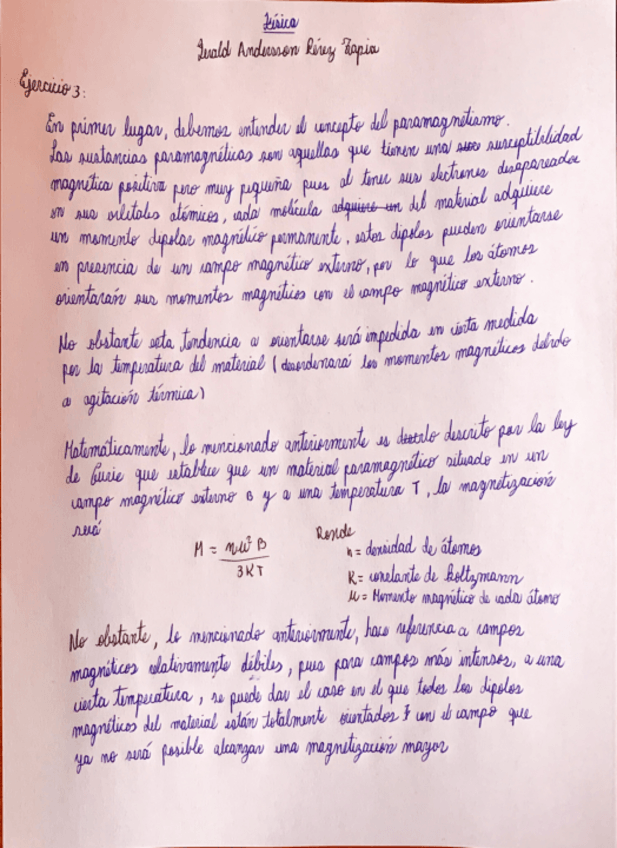 Física
Andersson Pérez Tapia
Ejercicio 3:
En primer lugar, debemos entender el concepto del paramagnetismo.
Las sustancias paramagnéticas son aquellas que tienen una susceptibilidad
magnética positiva pero muy pequeña pues al tener sus electrones desapareados
en sus orbitales atómicos, cada molécula adquiere un del material adquiere
un momento dipolar magnético permanente, estos dipolos pueden orientarse
en presencia de un campo magnético externo, por lo que los átomos
orientarán sus momentos magnéticos con el campo magnético externo.
No obstante esta tendencia a orientarse será impedida en cierta medida
por la temperatura del material (desordenará los momentos magnéticos debido
a agitación térmica)
Matemáticamente, lo mencionado anteriormente es descrito por la ley
de Curie que establece que un material paramagnético situado en un
campo magnético externo B y a una temperatura T, la magnetización
será
M = nμ²B / 3KT
Donde
n = densidad de átomos
K = constante de Boltzmann
μ = Momento magnético de cada átomo
No obstante, lo mencionado anteriormente, hace referencia a campos
magnéticos relativamente débiles, pues para campos más intensos, a una
cierta temperatura, se puede dar el caso en el que todos los dipolos
magnéticos del material están totalmente orientados con el campo que
ya no será posible alcanzar una magnetización mayor